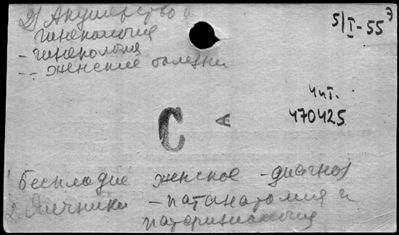 2) Акушерство в
гинекология
- гинекология
-- женские болезни
5/I-55 7
чит.
470425
С А
1 Бесплодие женское - диагноз
2 Яичники - патанатомия и
патофизиология